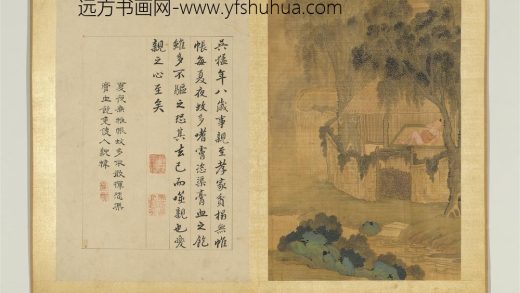 远方书画网-www.yfshuhua.com
吳猛年八歲事親至孝家貧榻無帷
帳每夏夜蚊多膚恣渠膏血之飽
雖多不驅之恐其去己而噬親也愛
親之心至矣
夏夜無帷帳蚊多不敢揮恣渠
膏血飽免使入親幃